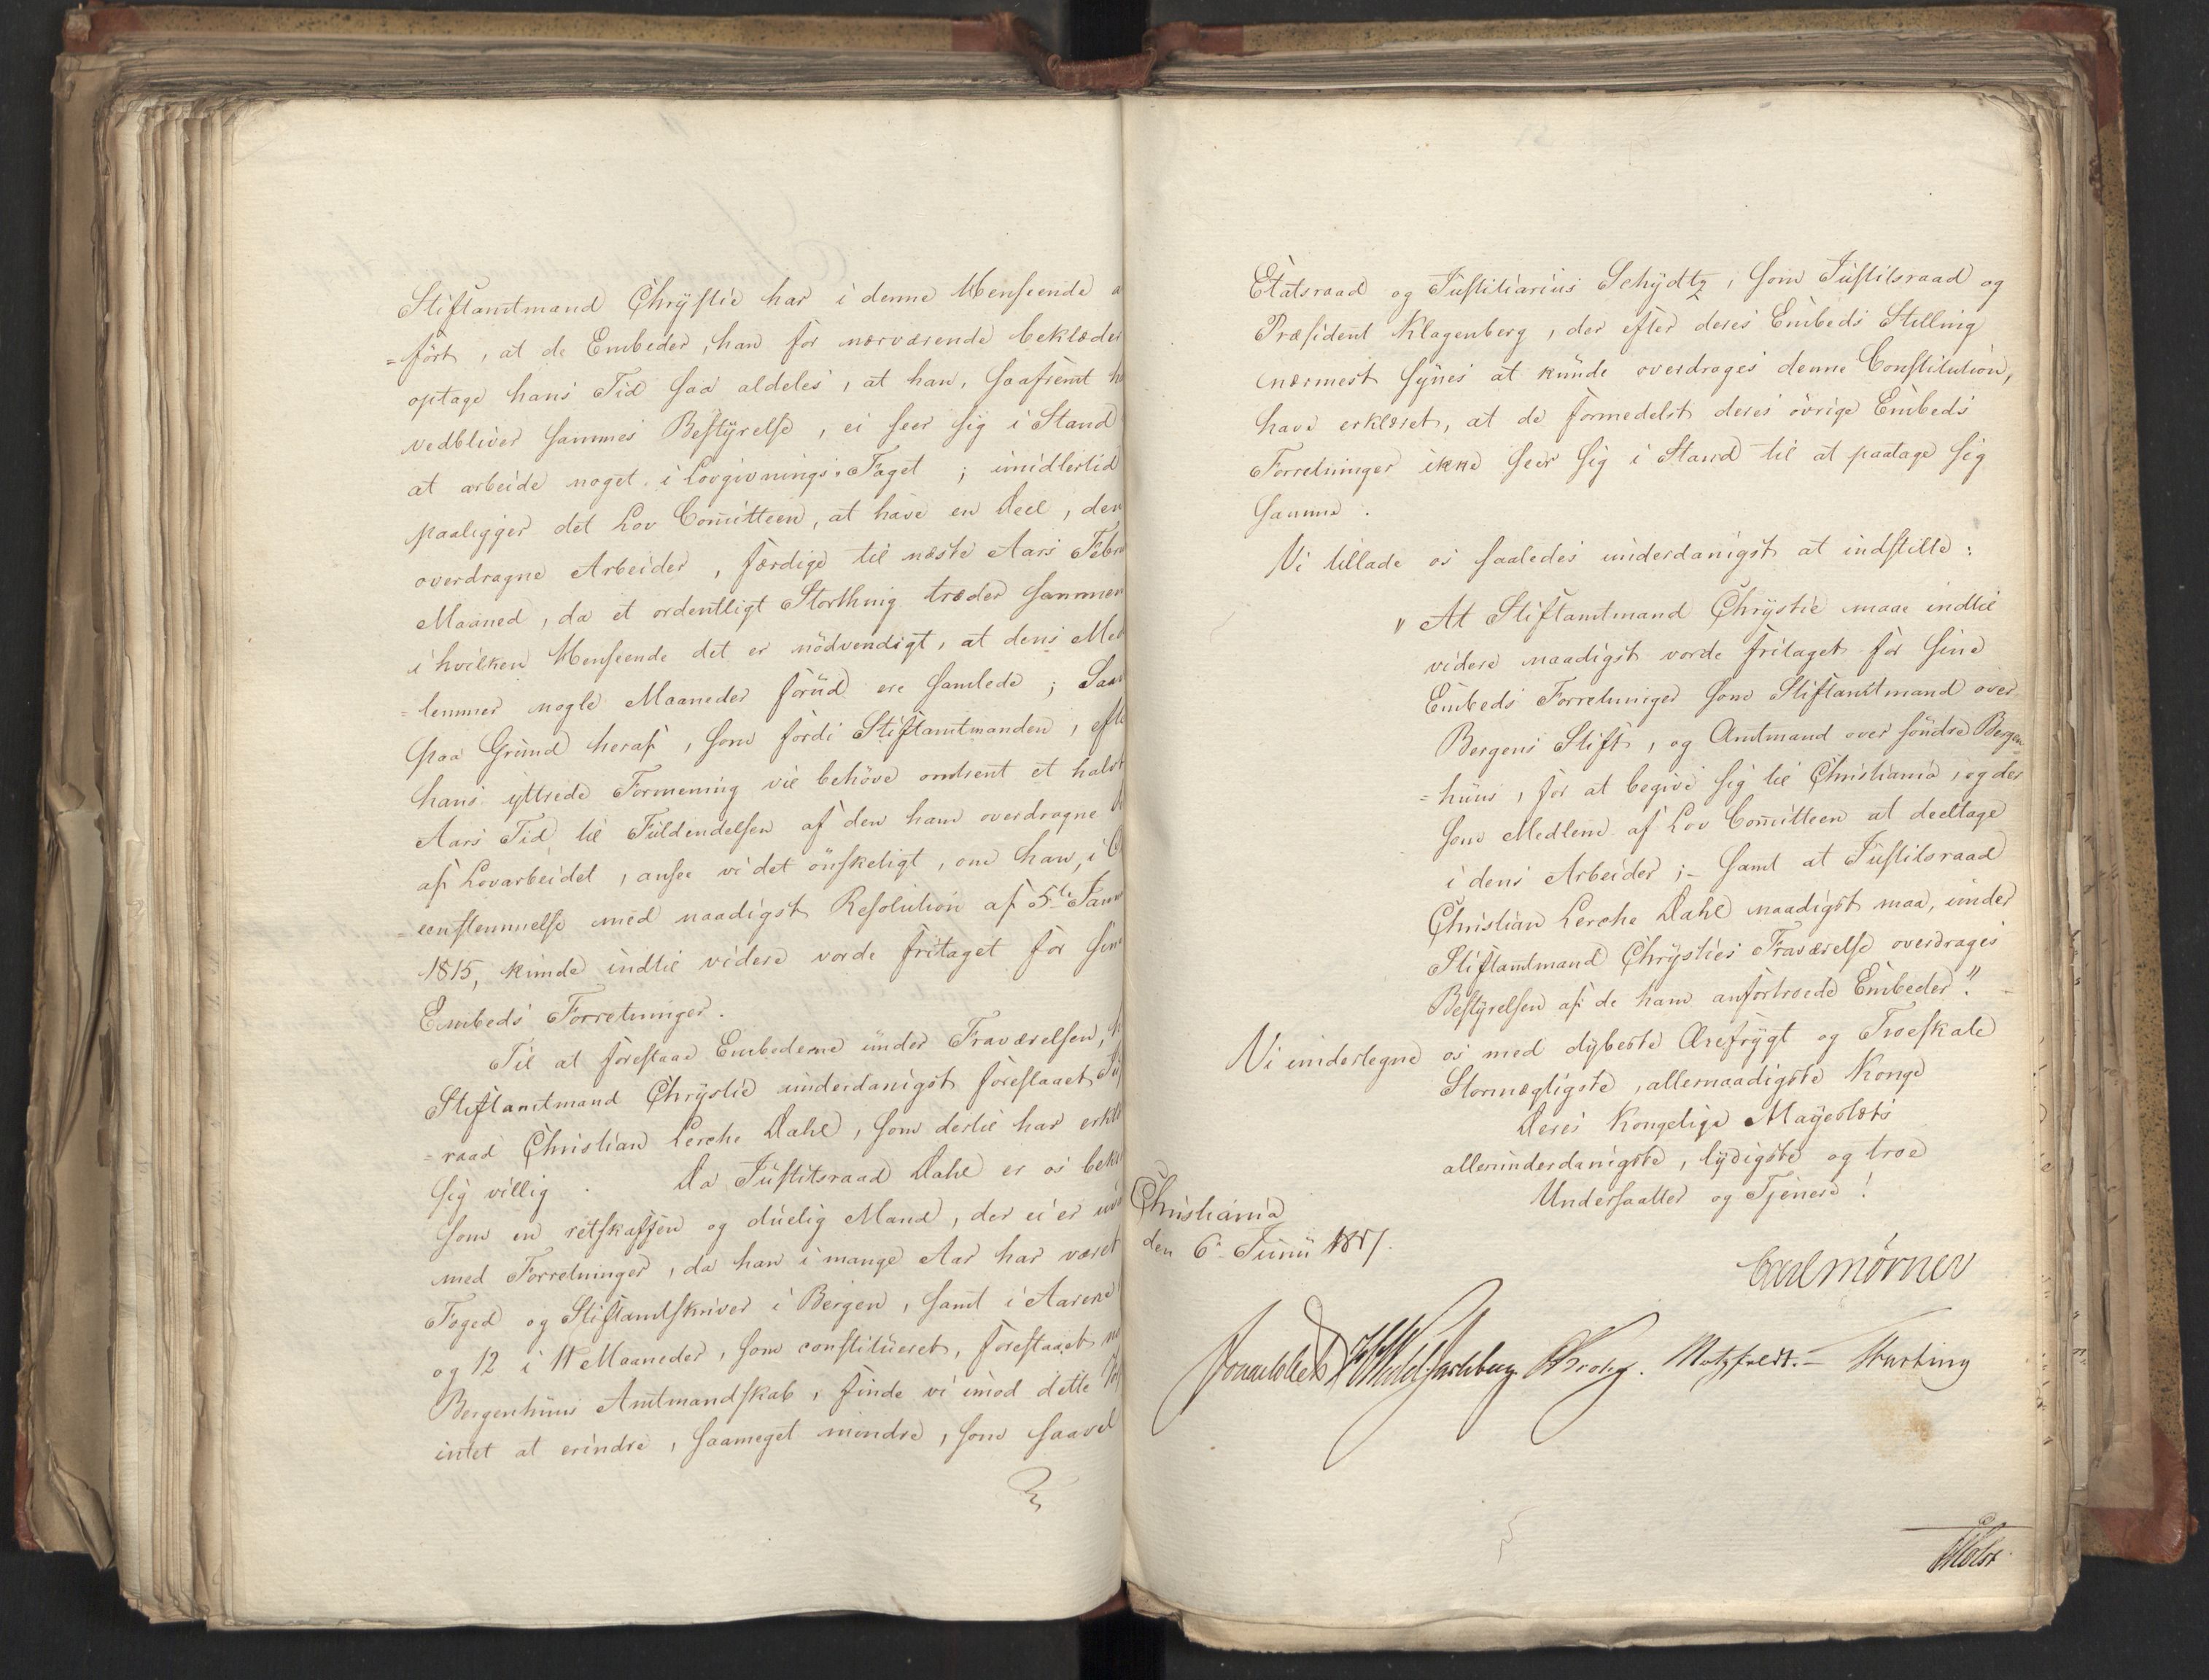 Stiftamtmand Chrÿstie har i denne Henseende a
=ført, at de Embeder, han for nærværende beklæder
optage hans Tid saa aldeles, at han, saafremt h
vedbliver sammes Bestÿrelse, ei seer sig i Stand
at arbeide noget i Lovgivnings-Faget; imidlertid
paaligger det Lov Com̄itteen, at have en Deel, den
overdragne Arbeider, færdige til næste Aars Febr
Maaned, da et ordentligt Storthing træder sammen
i hvilken Henseende det er nödvendigt, at dens Med
=lemmer nogle Maaneder forud ere samlede; Saa
paa Grund heraf, som fordi Stiftamtmanden, efte
hans ÿttrede Formening vil behöve omtrent et halvt
Aars Tid til Fuldendelsen af den ham overdragne
af Lovarbeidet, ansee vi det önskeligt, om han, i O
=eenstemmelse med naadigst Resolution af 5te Janu
1815, kunde indtil videre vorde fritaget for sine
Embeds Forretninger.
Til at forestaae Embederne under Fraværelsen,
Stiftamtmand Chrÿstie underdanigst foreslaaet Ju
=raad Christian Lerche Dahl, som dertil har erkl
sig villig. Da Justitsraad Dahl er os bek
som en retskaffen og duelig Mand, der ei er u
med Forretninger, da han i mange Aar har været
Foged og Stiftamtskriver i Bergen, samt i Aarene
og 12 i 11 Maaneder, som constitueret, forestaaet
Bergenhuus Amtmandskab, finde vi imod dette
intet at erindre, saameget mindre, som saavel
Etatsraad og Justitiarius Schÿdtz, som Justitsraad og
Præsident Klagenberg, der efter deres Embeds Stilling
nærmest sÿnes at kunde overdrages denne Constitution,
have erklæret, at de formedelst deres övrige Embeds
Forretninger ikke seer sig i Stand til at paatage sig
samme.
Vi tillade os saaledes underdanigst at indstille:
"At Stiftamtmand Chrÿstie maae indtil
videre naadigst vorde fritaget for sine
Embeds Forretninger som Stiftamtmand over
Bergens Stift, og Amtmand over söndre Bergen
=huus, for at begive sig til Christiania, og der
som Medlem af Lov Com̄itteen at deeltage
i dens Arbeider; – samt at Justitsraad
Christian Lerche Dahl naadigst maa, under
Stiftamtmand Chrÿsties Fraværelse overdrages
Bestÿrelsen af de ham anfortroede Embeder."
Vi undertegne os med dÿbeste Ærefrÿgt og Troeskab
Stormægtigste, allernaadigste Konge
Deres Kongelige Mayestæts
allerunderdanigste, lÿdigste og troe
Undersaatter og Tjenere!
Christiania
den 6te Junii 1817.
Carl Mörner
Sommelhjelm HWedel Jarlsberg. CKrohg. Motzfeldt. – 
Holst.